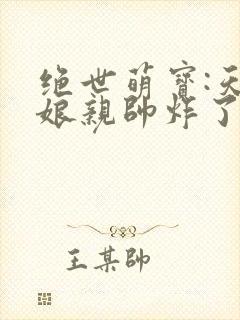 绝世萌寶:天
娘親帥炸了
王某帥